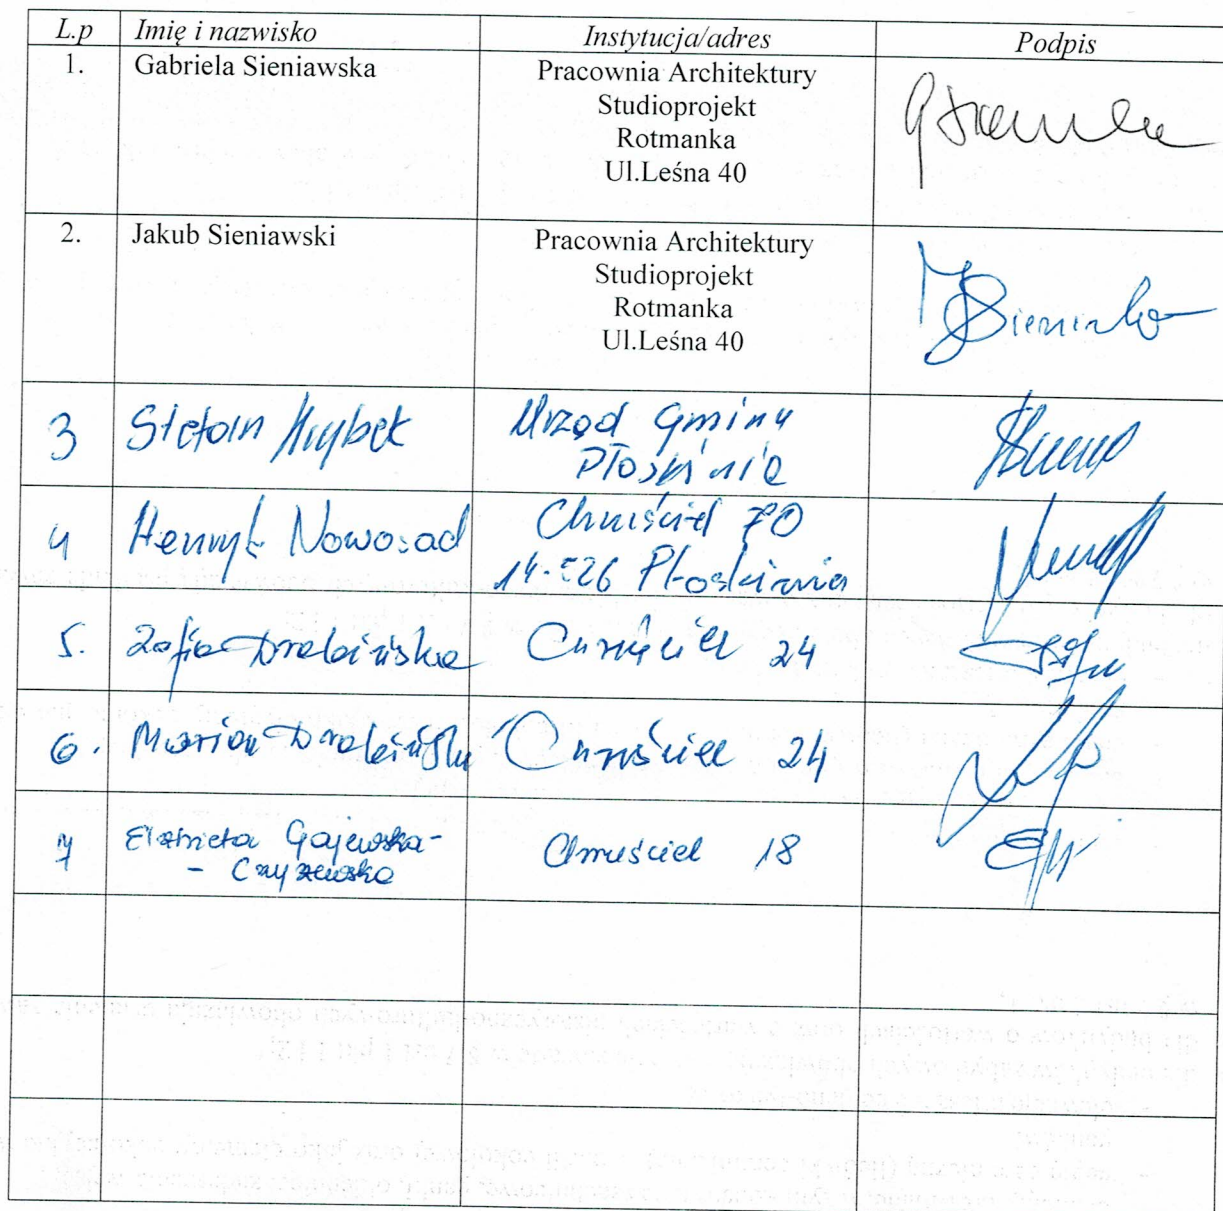 L.p Imię i nazwisko Instytucja/adres Podpis
1. Gabriela Sieniawska Pracownia Architektury
Studioprojekt
Rotmanka
Ul.Leśna 40
2. Jakub Sieniawski Pracownia Architektury
Studioprojekt
Rotmanka
Ul.Leśna 40
3 Stefan Hrybek Urząd Gminy
Płoskinia
4 Henryk Nowosad Chruściel 70
14-526 Płoskinia
5. Zofia Drabińska Chruściel 24
6. Marian Drabiński Chruściel 24
7 Elżbieta Gajewska-
- Czyżewska Chruściel 18